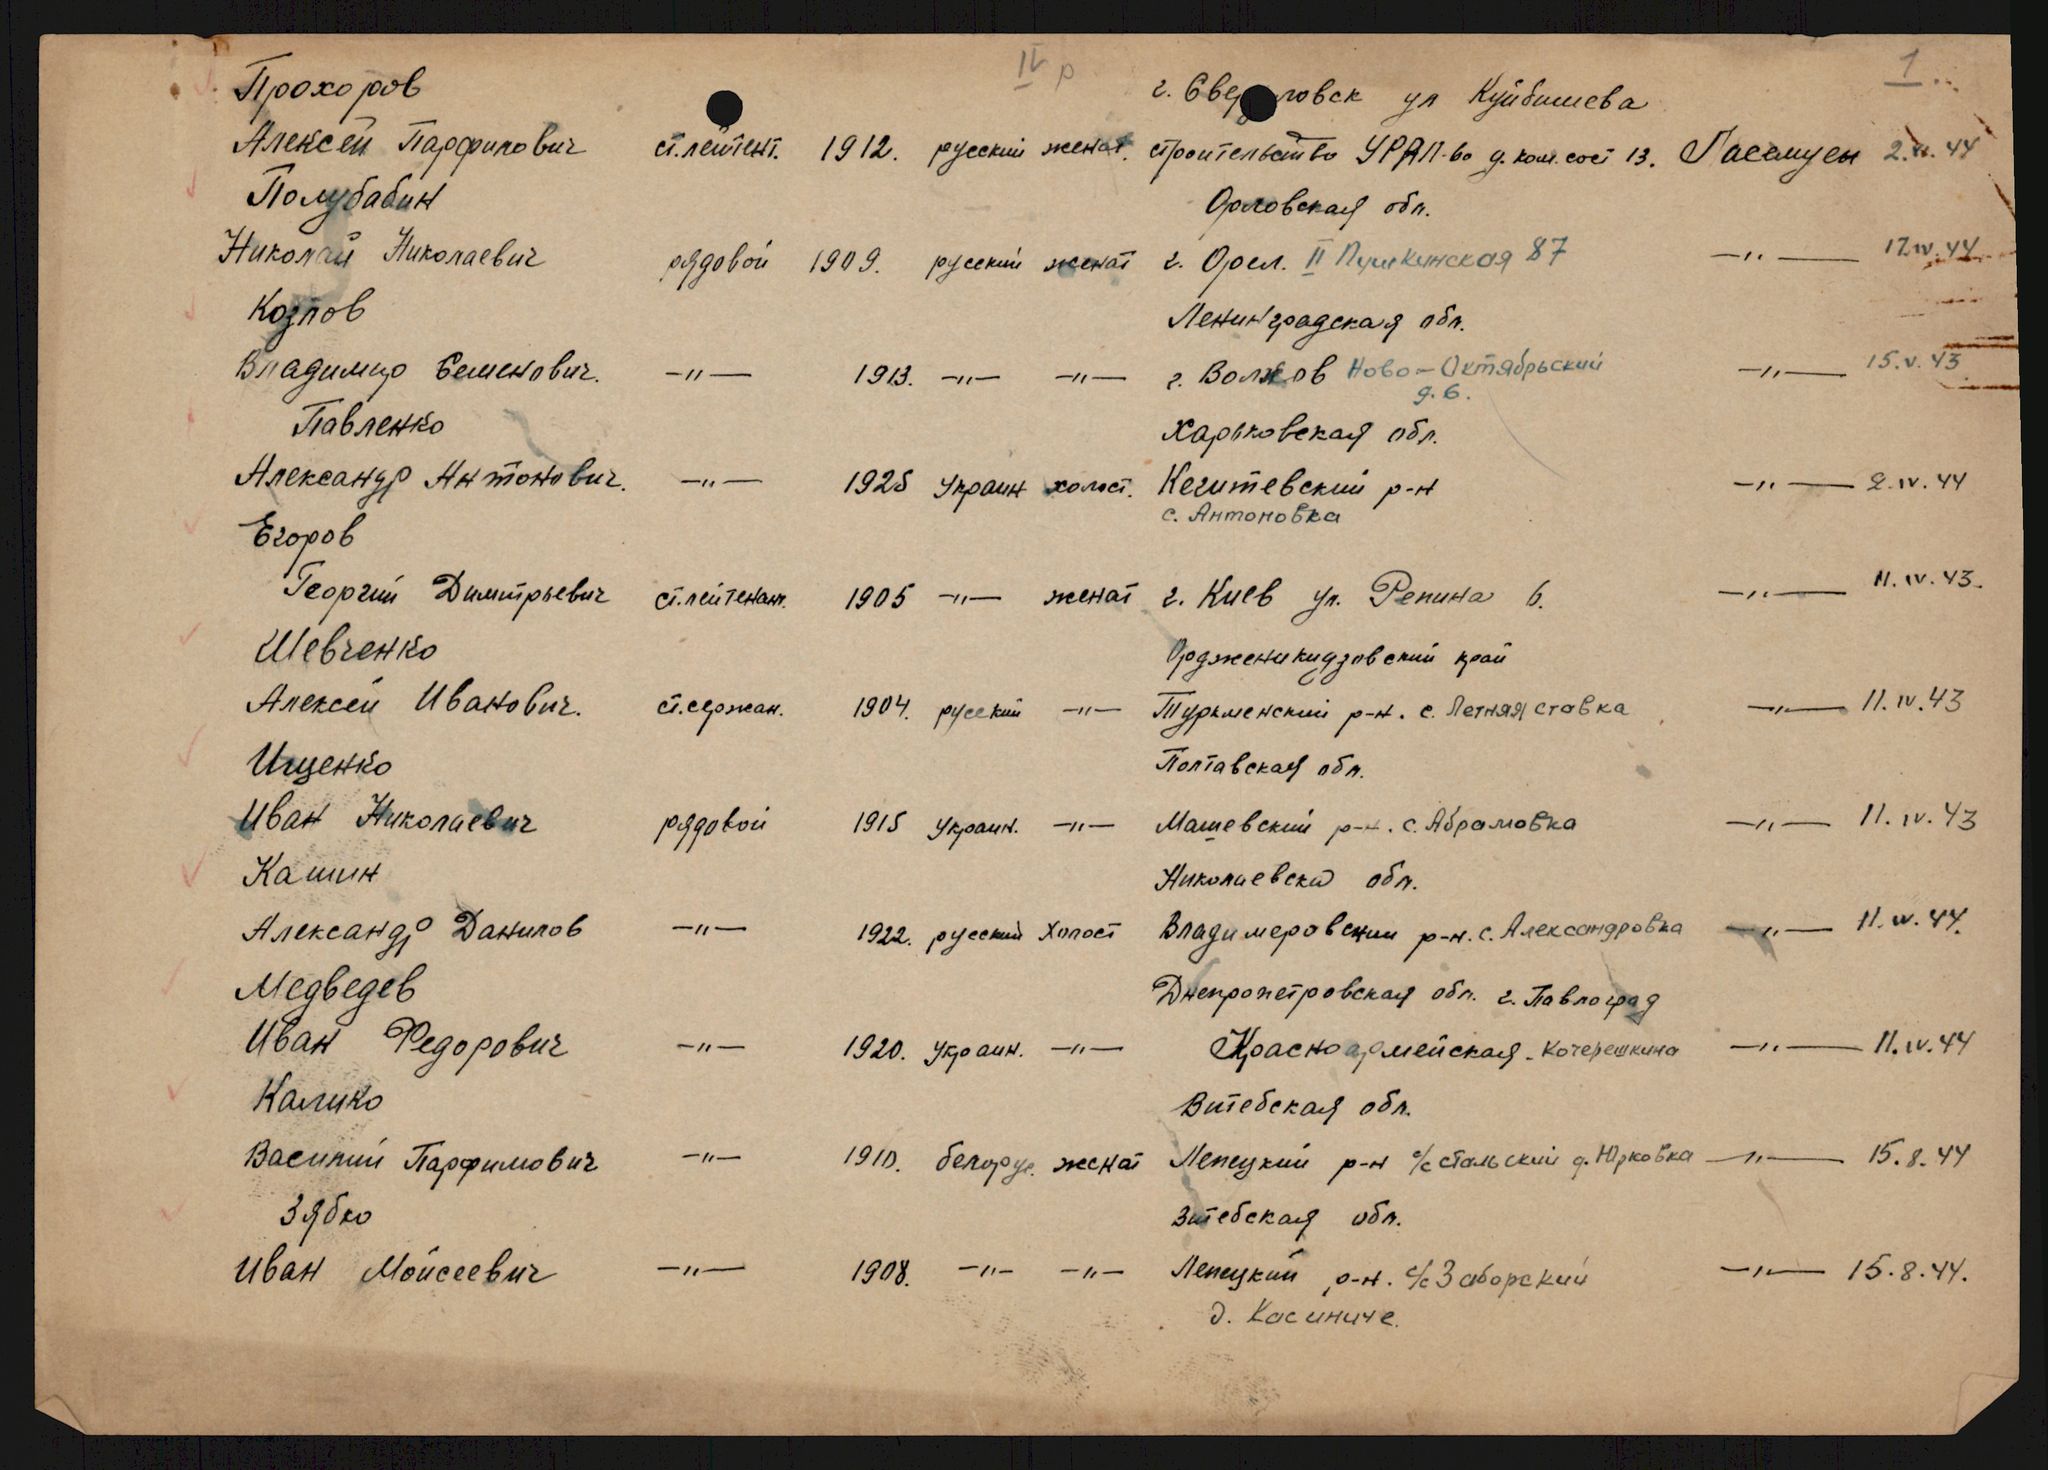 IV р 1
Прохоров г. Свердловск ул Куйбишева
Алексей Парфилович ст.лейтент. 1912. русский женат. строительство д. ком. сост 13. 2. 44
Полубабин Орловская обл.
Николай Николаевич рядовой 1909. русский женат г. Орел. II Пушкинская 87 —〃— 12.IV.44
Козлов Ленинградская обл.
Владимир Семенович. —〃— 1913. —〃— —〃— г. Волхов Ново-Октябрьский —〃— 15.V.43
д. 6.
Павленко Харьковская обл.
Александр Антонович. —〃— 1925 Украин холост. Кегитевский р-н —〃— 2.IV.44
с. Антоновка
Егоров
Георгий Димитрьевич ст.лейтенант. 1905 —〃— женат г. Киев ул. Репина 6. —〃— 11.IV.43.
Шевченко Орджоникидзовский край
Алексей Иванович. ст.сержан. 1904. русский —〃— Туркменский р-н. с. Летняя ставка —〃— 11.IV.43
Ищенко Полтавская обл.
Иван Николаевич рядовой 1915 Украин. —〃— Машевский р-н. с. Абрамовка —〃— 11.IV.43
Кашин Николаевска обл.
Александр Данилов —〃— 1922. русский Холост Владимеровский р-н. с. Александровка —〃— 11.IV.44.
Медведев Днепропетровская обл. г. Павлоград
Иван Федорович —〃— 1920. Украин. —〃— Красноармейская. Кочерешкина —〃— 11.IV.44
Калико Витебская обл.
Василий Парфимович —〃— 1910. белорус. женат Лепецкий р-н с/с стальский д. Юрковка —〃— 15.8.44
Зябко Витебская обл.
Иван Мойсеевич —〃— 1908. —〃— —〃— Лепецкий р-н. с/с Заборский —〃— 15.8.44.
д. Касиниче.